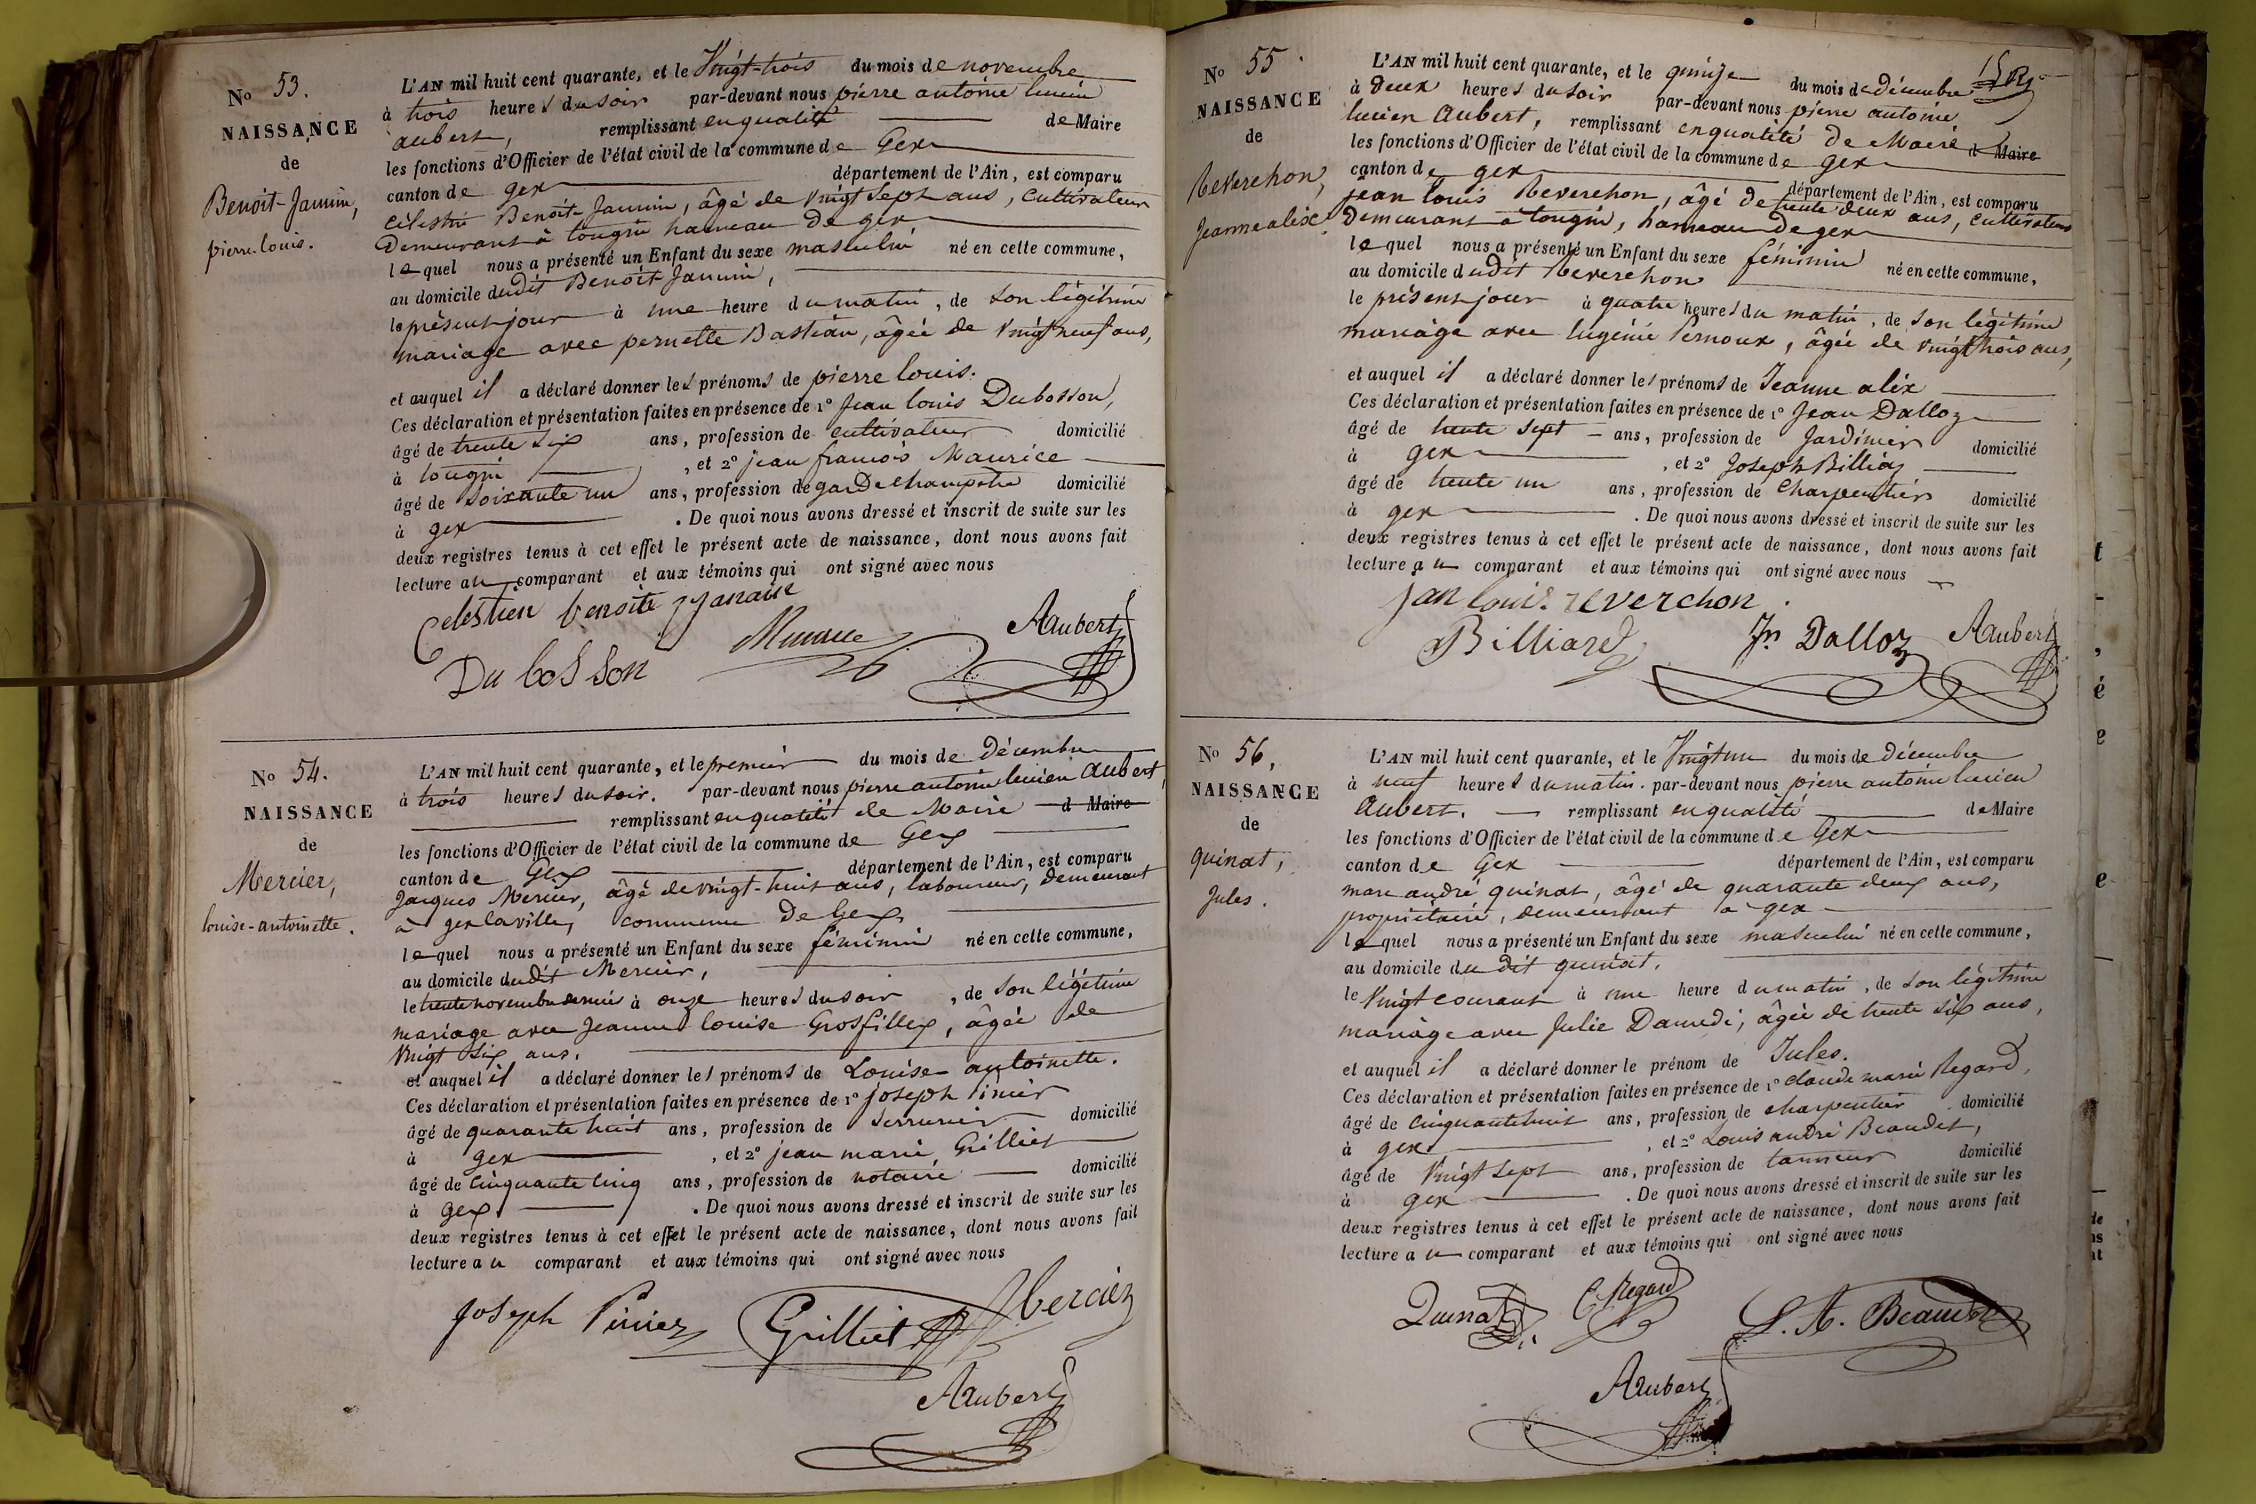 No 53.
NAISSANCE
de
Benoit-Jannin,
pierre louis.
L'AN mil huit cent quarante, et le Vingt-trois du mois de novembre
à trois heures du soir par-devant nous pierre antoine lucien
aubert, remplissant en qualité de Maire
les fonctions d'Officier de l'état civil de la commune de Gex
canton de gex département de l'Ain, est comparu
célestin Benoit-Jannin, âgé de Vingt Sept ans, Cultivateur
Demeurant à tougin hameau de gex
lequel nous a présenté un Enfant du sexe masculin né en cette commune,
au domicile dudit Benoit Jannin,
le présent jour à une heure du matin, de son légitime
mariage avec pernette Bastian, âgée de Vingt neuf ans,
et auquel il a déclaré donner les prénoms de pierre louis.
Ces déclaration et présentation faites en présence de 1º Jean louis Dubosson,
âgé de trente six ans, profession de cultivateur domicilié
à tougin, et 2º jean françois Maurice
âgé de soixante un ans, profession de garde champêtre domicilié
à gex. De quoi nous avons dressé et inscrit de suite sur les
deux registres tenus à cet effet le présent acte de naissance, dont nous avons fait
lecture au comparant et aux témoins qui ont signé avec nous
Celestien benoite
Du bosson Aaubert
No 54.
NAISSANCE
de
Mercier,
louise-antoinette.
L'AN mil huit cent quarante, et le premier du mois de Décembre
à trois heures du soir. par-devant nous pierre antoine lucien Aubert,
remplissant en qualité de Maire d Maire
les fonctions d'Officier de l'état civil de la commune de Gex
canton de Gex département de l'Ain, est comparu
Jacques Mercier, âgé de Vingt-huit ans, laboureur, demeurant
à gex la ville, commune De Gex
lequel nous a présenté un Enfant du sexe féminin né en cette commune,
au domicile dudit Mercier,
le trente novembre dernier à onze heures du soir, de son légitime
mariage avec Jeanne louise Grosfillex, âgée de
Vingt six ans.
et auquel il a déclaré donner les prénoms de Louise antoinette.
Ces déclaration et présentation faites en présence de 1º joseph Pinier
âgé de quarante huit ans, profession de serrurier domicilié
à gex, et 2º jean marie Grilliet
âgé de Cinquante Cinq ans, profession de notaire domicilié
à gex. De quoi nous avons dressé et inscrit de suite sur les
deux registres tenus à cet effet le présent acte de naissance, dont nous avons fait
lecture au comparant et aux témoins qui ont signé avec nous
Joseph Pinier Grilliet Mercier
Aaubert
No 55.
NAISSANCE
de
Reverchon,
Jeanne alix.
L'AN mil huit cent quarante, et le quinze du mois de décembre
à deux heures du soir par-devant nous pierre antoine
lucien Aubert, remplissant en qualité de Maire d Maire
les fonctions d'Officier de l'état civil de la commune de gex
canton de gex département de l'Ain, est comparu
jean louis Reverchon, âgé de trente deux ans, Cultivateur
Demeurant à tougin, hameau de gex
lequel nous a présenté un Enfant du sexe féminin né en cette commune,
au domicile dudit Reverchon
le présent jour à quatre heures du matin, de son légitime
mariage avec Eugénie Pernoux, âgée de Vingt trois ans,
et auquel il a déclaré donner les prénoms de Jeanne alix
Ces déclaration et présentation faites en présence de 1º Jean Dalloz
âgé de trente sept ans, profession de Jardinier domicilié
à gex, et 2º Joseph Billiard
âgé de trente un ans, profession de Charpentier domicilié
à gex. De quoi nous avons dressé et inscrit de suite sur les
deux registres tenus à cet effet le présent acte de naissance, dont nous avons fait
lecture au comparant et aux témoins qui ont signé avec nous
jan louis reverchon.
Billiard Jn Dalloz Aaubert
No 56,
NAISSANCE
de
quinat,
Jules.
L'AN mil huit cent quarante, et le Vingt un du mois de décembre
à neuf heures du matin. par-devant nous pierre antoine lucien
Aubert. remplissant en qualité de Maire
les fonctions d'Officier de l'état civil de la commune de Gex
canton de Gex département de l'Ain, est comparu
marc andré quinat, âgé de quarante deux ans,
propriétaire, demeurant à gex
lequel nous a présenté un Enfant du sexe masculin né en cette commune,
au domicile du dit quinat,
le Vingt courant à une heure du matin, de son légitime
mariage avec Julie Damedi, âgée de trente six ans,
et auquel il a déclaré donner le prénom de Jules.
Ces déclaration et présentation faites en présence de 1º claude marie Regard,
âgé de Cinquante huit ans, profession de charpentier domicilié
à gex, et 2º Louis andré Beaudet,
âgé de Vingt sept ans, profession de tanneur domicilié
à gex. De quoi nous avons dressé et inscrit de suite sur les
deux registres tenus à cet effet le présent acte de naissance, dont nous avons fait
lecture au comparant et aux témoins qui ont signé avec nous
Quinat C. Regard L. A. Beaudet
Aaubert